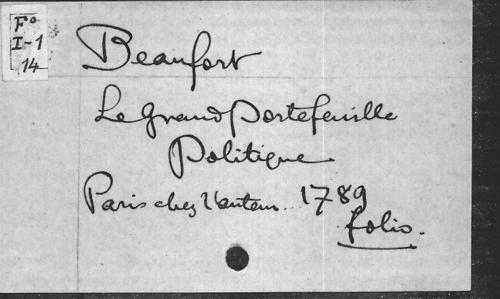 Fº
I-1
14
Beaufort
Le Grand Portefeuille
Politique
Paris chez l'auteur. 1789
folio.